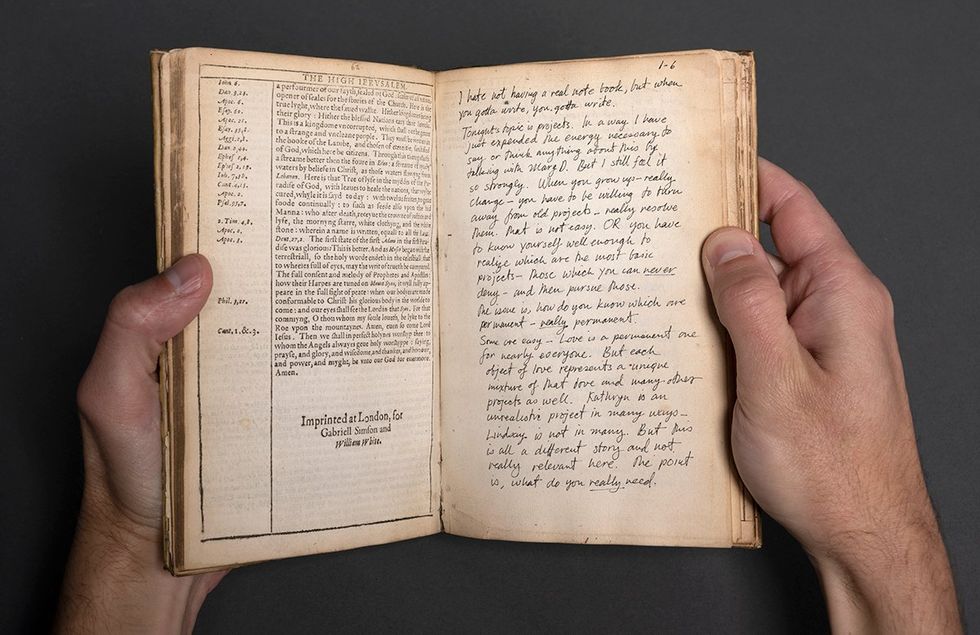 62
THE HIGH IERVSALEM.
Iohn 6.
Dan. 9,24.
Apoc. 6.
Esay. 60.
Apoc. 21.
Esay. 35,8.
Aggi. 2,8.
Dan. 2,44.
Ephes. 1,4.
Ephes. 2,19.
Ioh. 7,38.
Cant. 4,15.
Apoc. 2.
Psal. 55,7.
2. Tim. 4,8.
Apoc. 2,
Apoc. 3.
Phil. 3,21.
Cant. 1. & 3.
a perfourmer of our fayth, sealed of God
opener of seales for the stories of the Church. Here is the
true lyght, where the saued walke. Hither kings bring
their glory: Hither the blessed Nations cary their
This is a kingdome vncorrupted, which shall not be
to a strange and vncleane people. They must be written in
the booke of the Lambe, and chosen of
of God, which here be citizens. Through this
a streame better then the foure in Eden: a streame of
waters by beliefe in Christ, as those waters flowing from
Lebanon. Here is that Tree of lyfe in the myddes of the Pa-
radise of God, with leaues to heale the nations, that
cured, whyle it is sayd to day: with twelue fruites, to giue
foode continually: to such as feede also vpon the hid
Manna: who after death, receyue the crowne of iustice and
lyfe, the mornyng starre, white clothyng, and the white
stone: wherein a name is written, equall to all the Law.
Deut. 27,2. The first state of the first Adam in the first Para-
dise was glorious: This is better. And as Moses began with the
terrestriall, so the holy wordes endeth in the celestiall, that
to wheeles full of eyes, may the writ of trueth be compared.
The full consent and melody of Prophetes and Apostles:
how their Harpes are tuned on Mount Syon, it will fully ap-
peare in the full sight of peace: when our bodies are made
conformable to Christ his glorious body in the world to
come: and our eyes shall see the Lord in that Syon. For that
commyng, O thou whom my soule loueth, be lyke to the
Roe vpon the mountaynes. Amen, euen so come Lord
Iesus. Then we shall in perfect holynes worshyp thee: to
whom the Angels alwayes geue holy worshyppe: saying,
prayse, and glory, and wisedome, and thankes, and honour,
and power, and myght, be vnto our God for euermore.
Amen.
Imprinted at London, for
Gabriell Simson and
William White.
1-6
I hate not having a real note book, but when
you gotta write, you gotta write.
Tonight's topic is projects. In a way I have
just expended the energy necessary to
say or think anything about this by
talking with Marg D. But I still feel it
so strongly. When you grow up – really
change – you have to be willing to turn
away from old projects – really resolve
them. That is not easy. OR you have
to know yourself well enough to
realize which are the most basic
projects – those which you can never
deny – and then pursue those.
The issue is, how do you know which are
permanent – really permanent.
Some are easy – Love is a permanent one
for nearly everyone. But each
object of love represents a unique
mixture of that love and many other
projects as well. Kathryn is an
unrealistic project in many ways –
Lindsay is not in many. But this
is all a different story and not
really relevant here. The point
is, what do you really need.